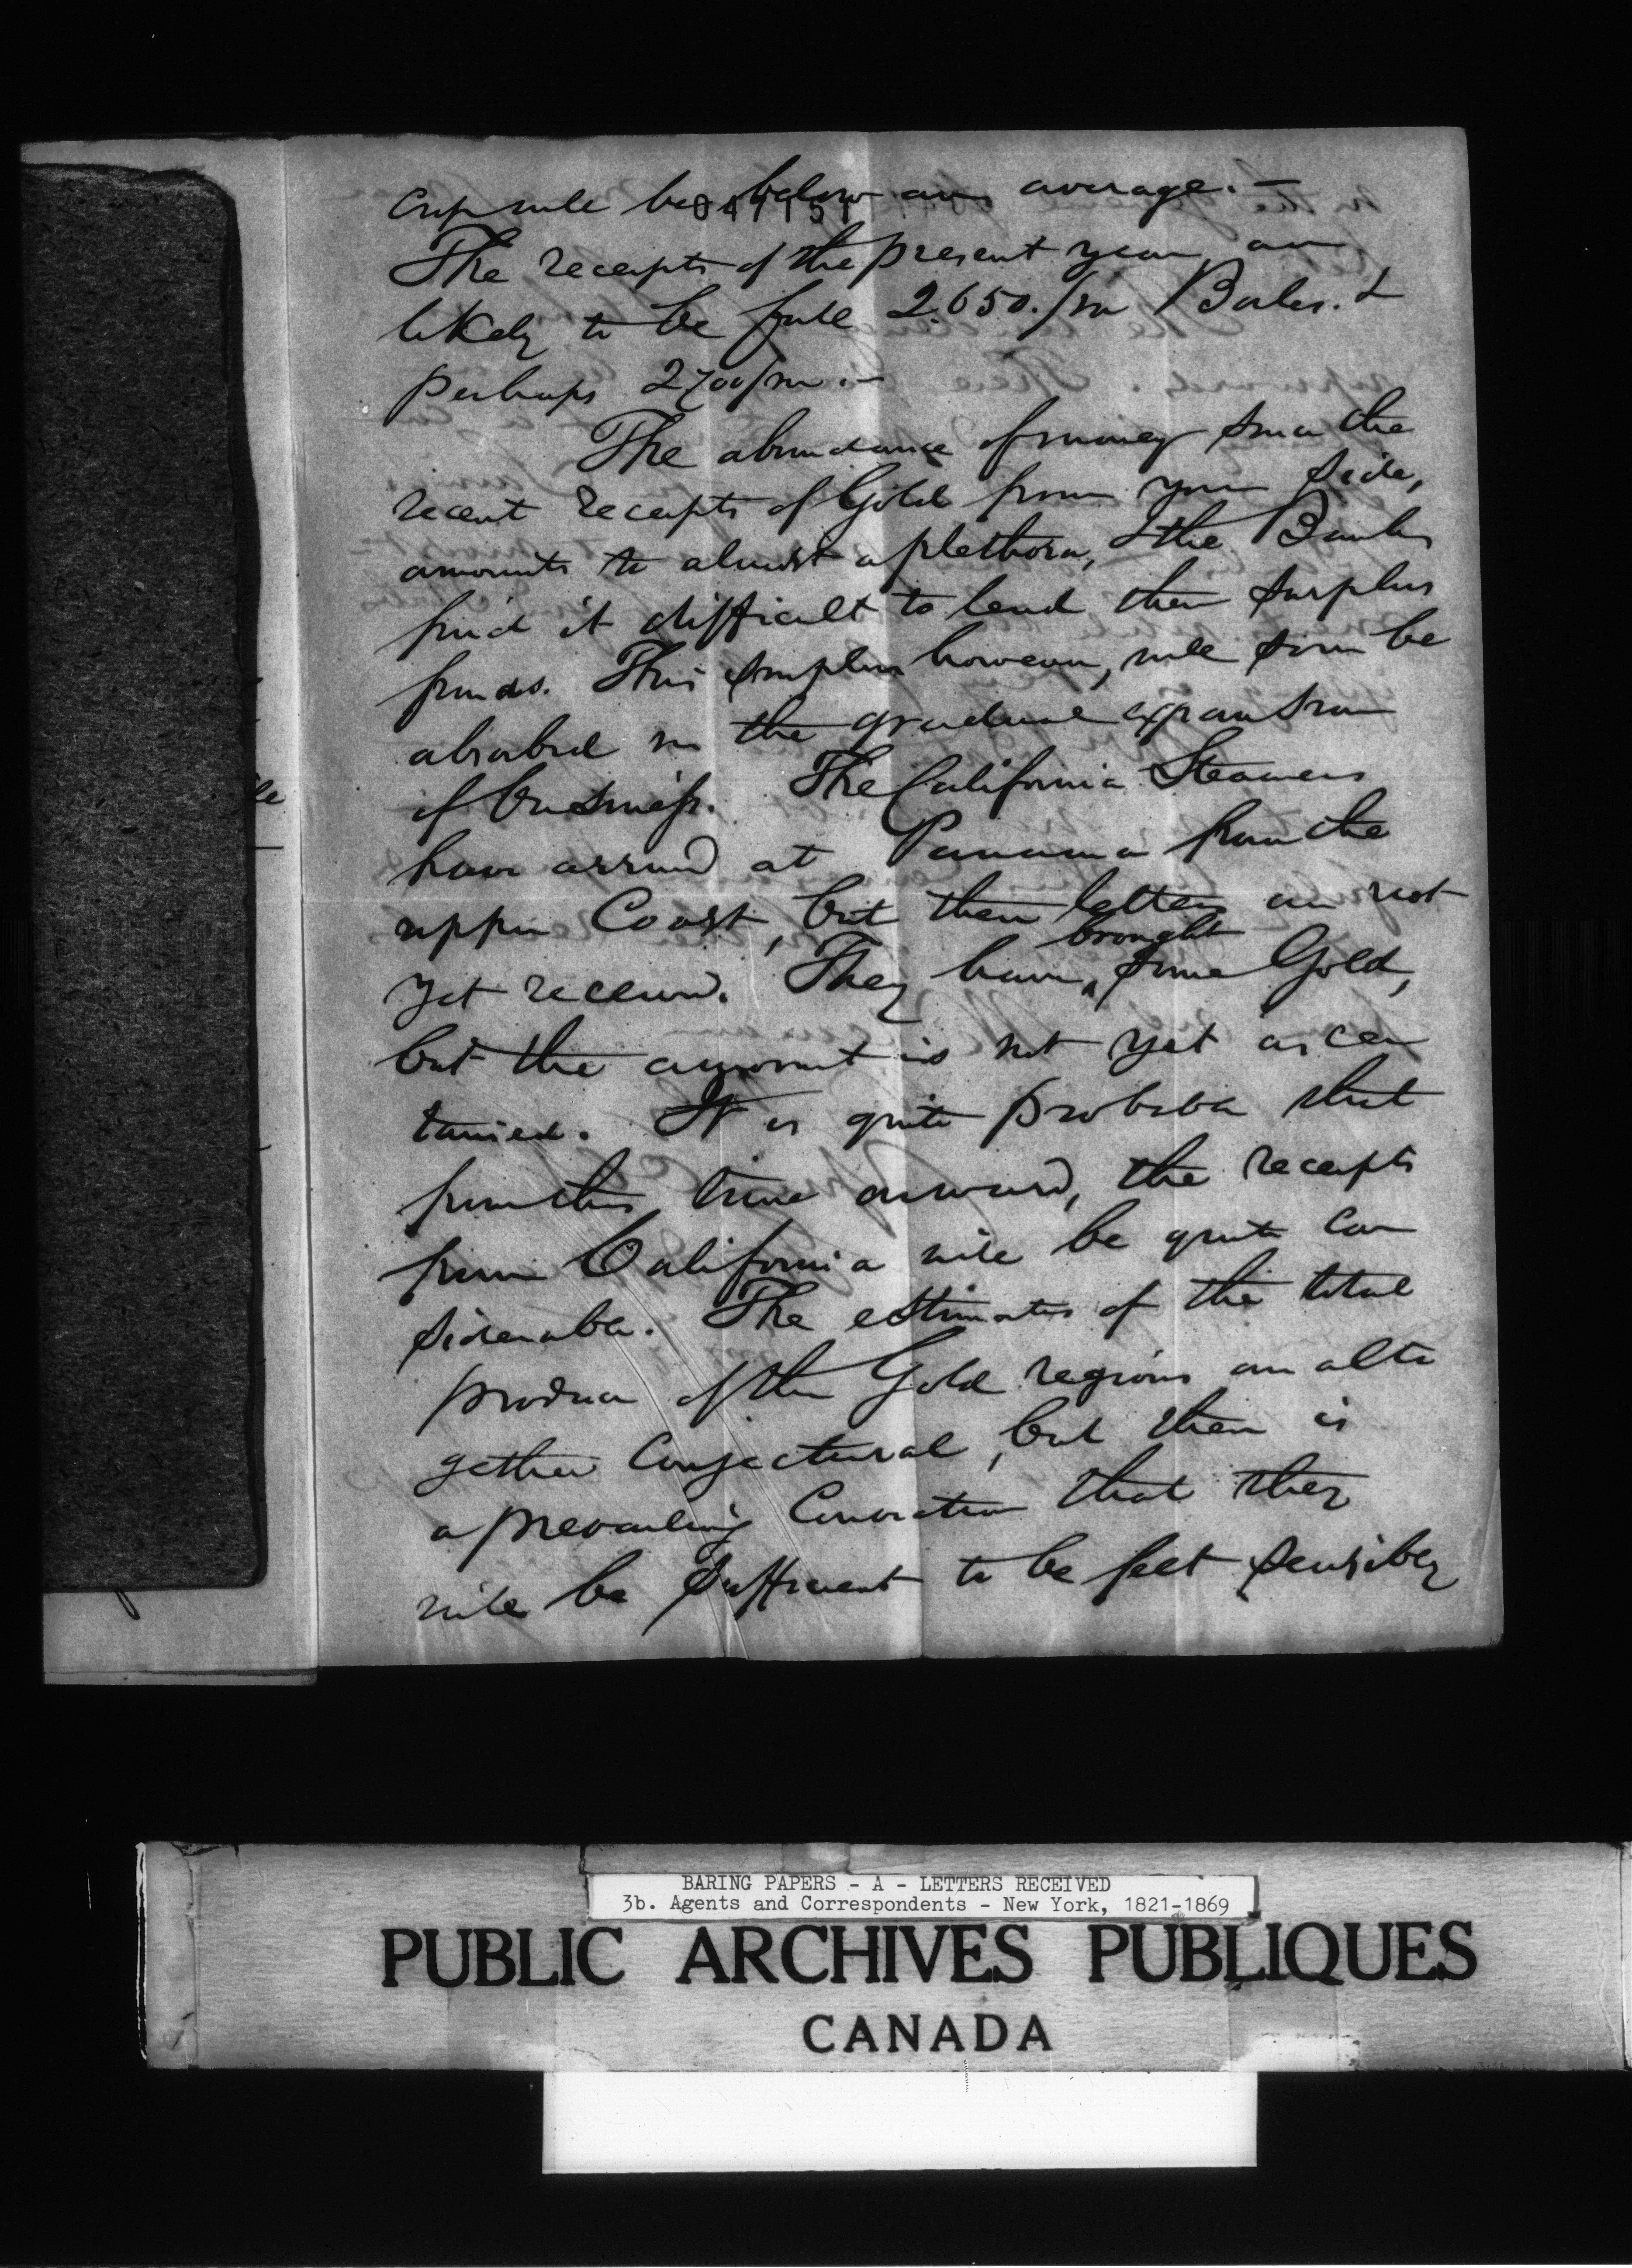 crop will be below an average. —
047151
The receipts of the present year are
likely to be full 2.650./m Bales. &
perhaps 2700/m. —
The abundance of money since the
recent receipts of Gold from your side,
amounts to almost a plethora, & the Banks
find it difficult to lend their surplus
funds. This surplus however, will soon be
absorbed in the gradual expansion
of business. The California Steamers
have arrived at Panama from the
upper Coast, but their letters are not
yet received. They have brought some Gold,
but the amount is not yet ascer
tained. It is quite probable that
from this time onward, the receipts
from California will be quite con
siderable. The estimates of the total
produce of the Gold regions are alto
gether Conjectural, but there is
a prevailing Conviction that they
will be sufficient to be felt sensibly
BARING PAPERS - A - LETTERS RECEIVED
3b. Agents and Correspondents - New York, 1821-1869
PUBLIC ARCHIVES PUBLIQUES
CANADA